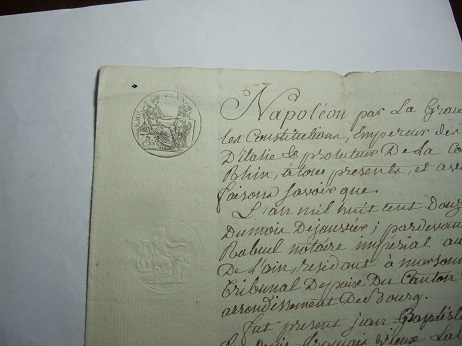 Napoléon par La Grace
les Constitutions, Empereur des
D'italie & protecteur De La Co
Rhin, à tous presents, et a v
faisons Savoir que.
L'an mil huit cent Douz
Dumois Dejanvier; pardevan
Rabuel notaire imperial au
De L'ain, residant à marson
Tribunal Depaix Du Canton
arrondissement De Bourg.
fut present jean-Baptiste